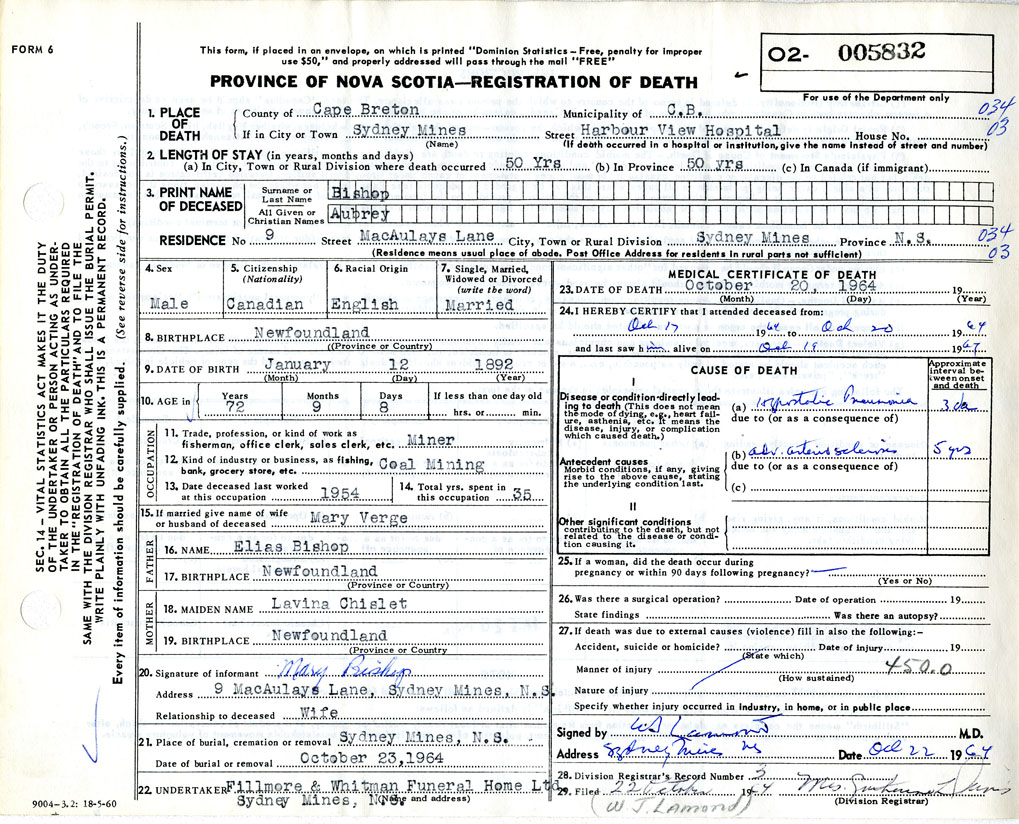 FORM 6
This form, if placed in an envelope, on which is printed "Dominion Statistics – Free, penalty for improper
use $50," and properly addressed will pass through the mail "FREE"
O2- 005832
For use of the Department only
PROVINCE OF NOVA SCOTIA—REGISTRATION OF DEATH
1. PLACE OF DEATH County of Cape Breton Municipality of C.B. 034
If in City or Town Sydney Mines Street Harbour View Hospital House No. 03
(Name) (If death occurred in a hospital or institution, give the name instead of street and number)
2. LENGTH OF STAY (in years, months and days)
(a) In City, Town or Rural Division where death occurred 50 Yrs (b) In Province 50 yrs (c) In Canada (if immigrant)
3. PRINT NAME OF DECEASED Surname or Last Name Bishop
All Given or Christian Names Aubrey
RESIDENCE No 9 Street MacAulays Lane City, Town or Rural Division Sydney Mines Province N.S. 034
(Residence means usual place of abode. Post Office Address for residents in rural parts not sufficient) 03
4. Sex 5. Citizenship (Nationality) 6. Racial Origin 7. Single, Married, Widowed or Divorced (write the word)
Male Canadian English Married
8. BIRTHPLACE Newfoundland
(Province or Country)
9. DATE OF BIRTH January 12 1892
(Month) (Day) (Year)
10. AGE in Years Months Days If less than one day old
72 9 8 hrs. or min.
OCCUPATION
11. Trade, profession, or kind of work as
fisherman, office clerk, sales clerk, etc. Miner
12. Kind of industry or business, as fishing,
bank, grocery store, etc. Coal Mining
13. Date deceased last worked at this occupation 1954 14. Total yrs. spent in this occupation 35
15. If married give name of wife
or husband of deceased Mary Verge
FATHER
16. NAME Elias Bishop
17. BIRTHPLACE Newfoundland
(Province or Country)
MOTHER
18. MAIDEN NAME Lavina Chislet
19. BIRTHPLACE Newfoundland
(Province or Country)
20. Signature of informant Mary Bishop
Address 9 MacAulays Lane, Sydney Mines, N.S.
Relationship to deceased Wife
21. Place of burial, cremation or removal Sydney Mines, N.S.
Date of burial or removal October 23,1964
22. UNDERTAKER Fillmore & Whitman Funeral Home Ltd
Sydney Mines, N.S. (Name and address)
MEDICAL CERTIFICATE OF DEATH
23. DATE OF DEATH October 20, 1964 19
(Month) (Day) (Year)
24. I HEREBY CERTIFY that I attended deceased from:
Oct 17 1964 to Oct 20 1964
and last saw him alive on Oct 19 1967
CAUSE OF DEATH
Approximate interval between onset and death
I
Disease or condition directly leading
to death (This does not mean
the mode of dying, e.g., heart failure,
asthenia, etc. It means the
disease, injury, or complication
which caused death.)
(a) Hypostatic Pneumonia 3 da
due to (or as a consequence of)
Antecedent causes
Morbid conditions, if any, giving
rise to the above cause, stating
the underlying condition last.
(b) adv. arteriosclerosis 5 yrs
due to (or as a consequence of)
(c)
II
Other significant conditions
contributing to the death, but not
related to the disease or condition
causing it.
25. If a woman, did the death occur during
pregnancy or within 90 days following pregnancy?
(Yes or No)
26. Was there a surgical operation? Date of operation 19
State findings Was there an autopsy?
27. If death was due to external causes (violence) fill in also the following:–
Accident, suicide or homicide? Date of injury 19
(State which)
Manner of injury 450.0
(How sustained)
Nature of injury
Specify whether injury occurred in industry, in home, or in public place
Signed by W J Lamond M.D.
Address Sydney Mines NS Date Oct 22 1964
28. Division Registrar's Record Number 3
29. Filed 22 October 1964 Mrs.
(W J. LAMOND) (Division Registrar)
SEC. 14 – VITAL STATISTICS ACT MAKES IT THE DUTY
OF THE UNDERTAKER OR PERSON ACTING AS UNDERTAKER
TO OBTAIN ALL THE PARTICULARS REQUIRED
IN THE "REGISTRATION OF DEATH" AND TO FILE THE
SAME WITH THE DIVISION REGISTRAR WHO SHALL ISSUE THE BURIAL PERMIT.
WRITE PLAINLY WITH UNFADING INK. THIS IS A PERMANENT RECORD.
Every item of information should be carefully supplied. (See reverse side for instructions.)
9004–3.2: 18-5-60